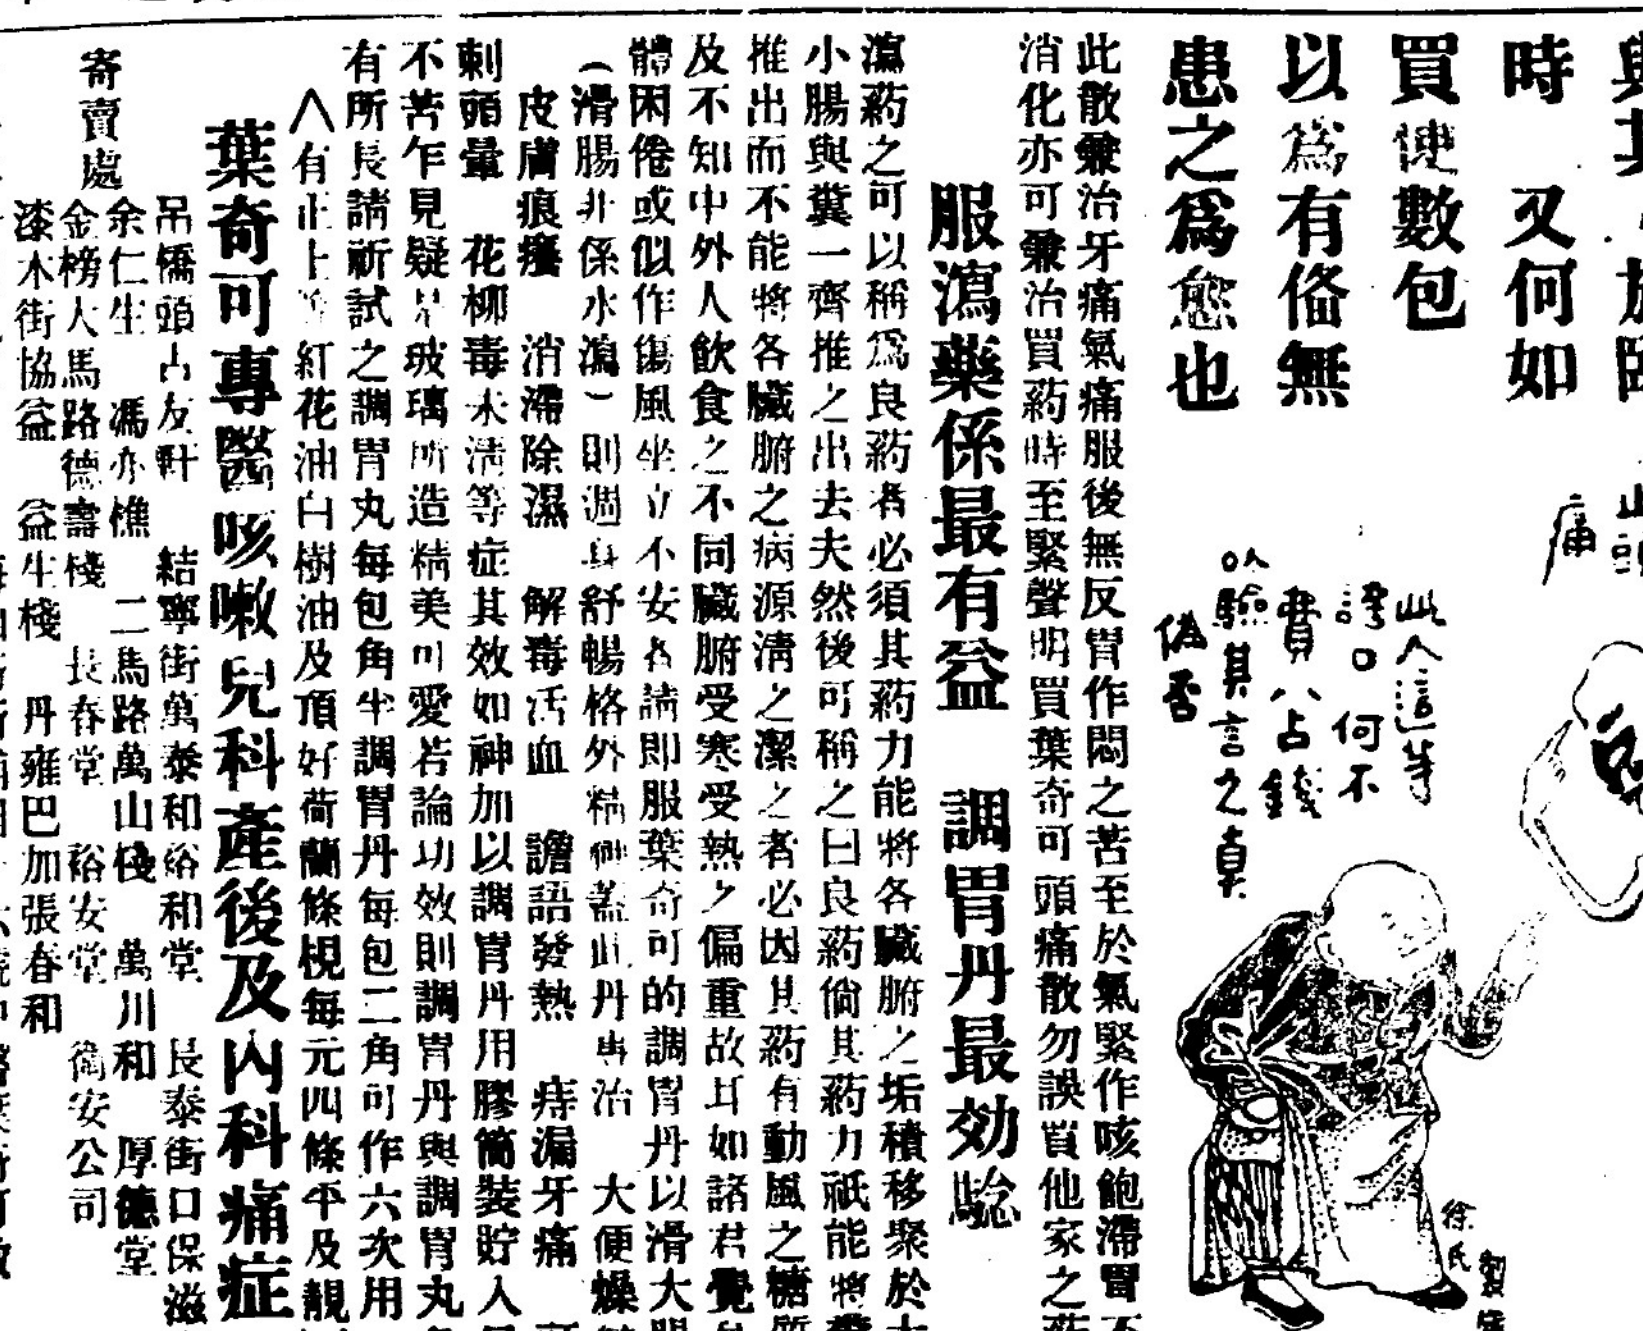 時 又何如
買使數包
以爲有俻無
患之爲愈也
痛
此人這等
誇口何不
費八占錢
以驗其言之真
偽否
徐氏
此散兼治牙痛氣痛服後無反胃作悶之苦至於氣緊作咳飽滯胃不
消化亦可兼治買葯時至緊聲明買葉奇可頭痛散勿誤買他家之葯
服瀉藥係最有益 調胃丹最効騐
瀉葯之可以稱爲良葯者必須其葯力能將各臟腑之垢積移聚於大
小腸與糞一齊推之出去夫然後可稱之曰良葯倘其葯力祇能將糞
推出而不能將各臟腑之病源淸之潔之者必因其葯有動風之糖質
及不知中外人飲食之不同臟腑受寒受熱之偏重故耳如諸君覺身
體困倦或似作傷風坐立不安者請即服葉奇可的調胃丹以滑大腸
(滑腸非係水瀉)則週身舒暢格外精神蓋此丹專治 大便燥
皮膚痕癢 消滯除濕 解毒活血 譫語發熱 痔漏牙痛
刺頭暈 花柳毒未淸等症其效如神加以調胃丹用膠筒裝貯人
不苦乍見疑是玻璃所造精美可愛若論功效則調胃丹與調胃丸
有所長請祈試之調胃丸每包角半調胃丹每包二角可作六次用
八有正上等紅花油白樹油及頂好荷蘭條梘每元四條平及靚
葉奇可專醫咳嗽兒科產後及內科痛症
寄賣處
吊橋頭占友軒 結寧街萬泰和裕和堂 長泰街口保滋
余仁生 馮亦樵 二馬路萬山棧 萬川和 厚德堂
金榜大馬路德壽棧 長春堂 裕安堂 衛安公司
漆木街協益 益生棧 丹雍巴加張春和